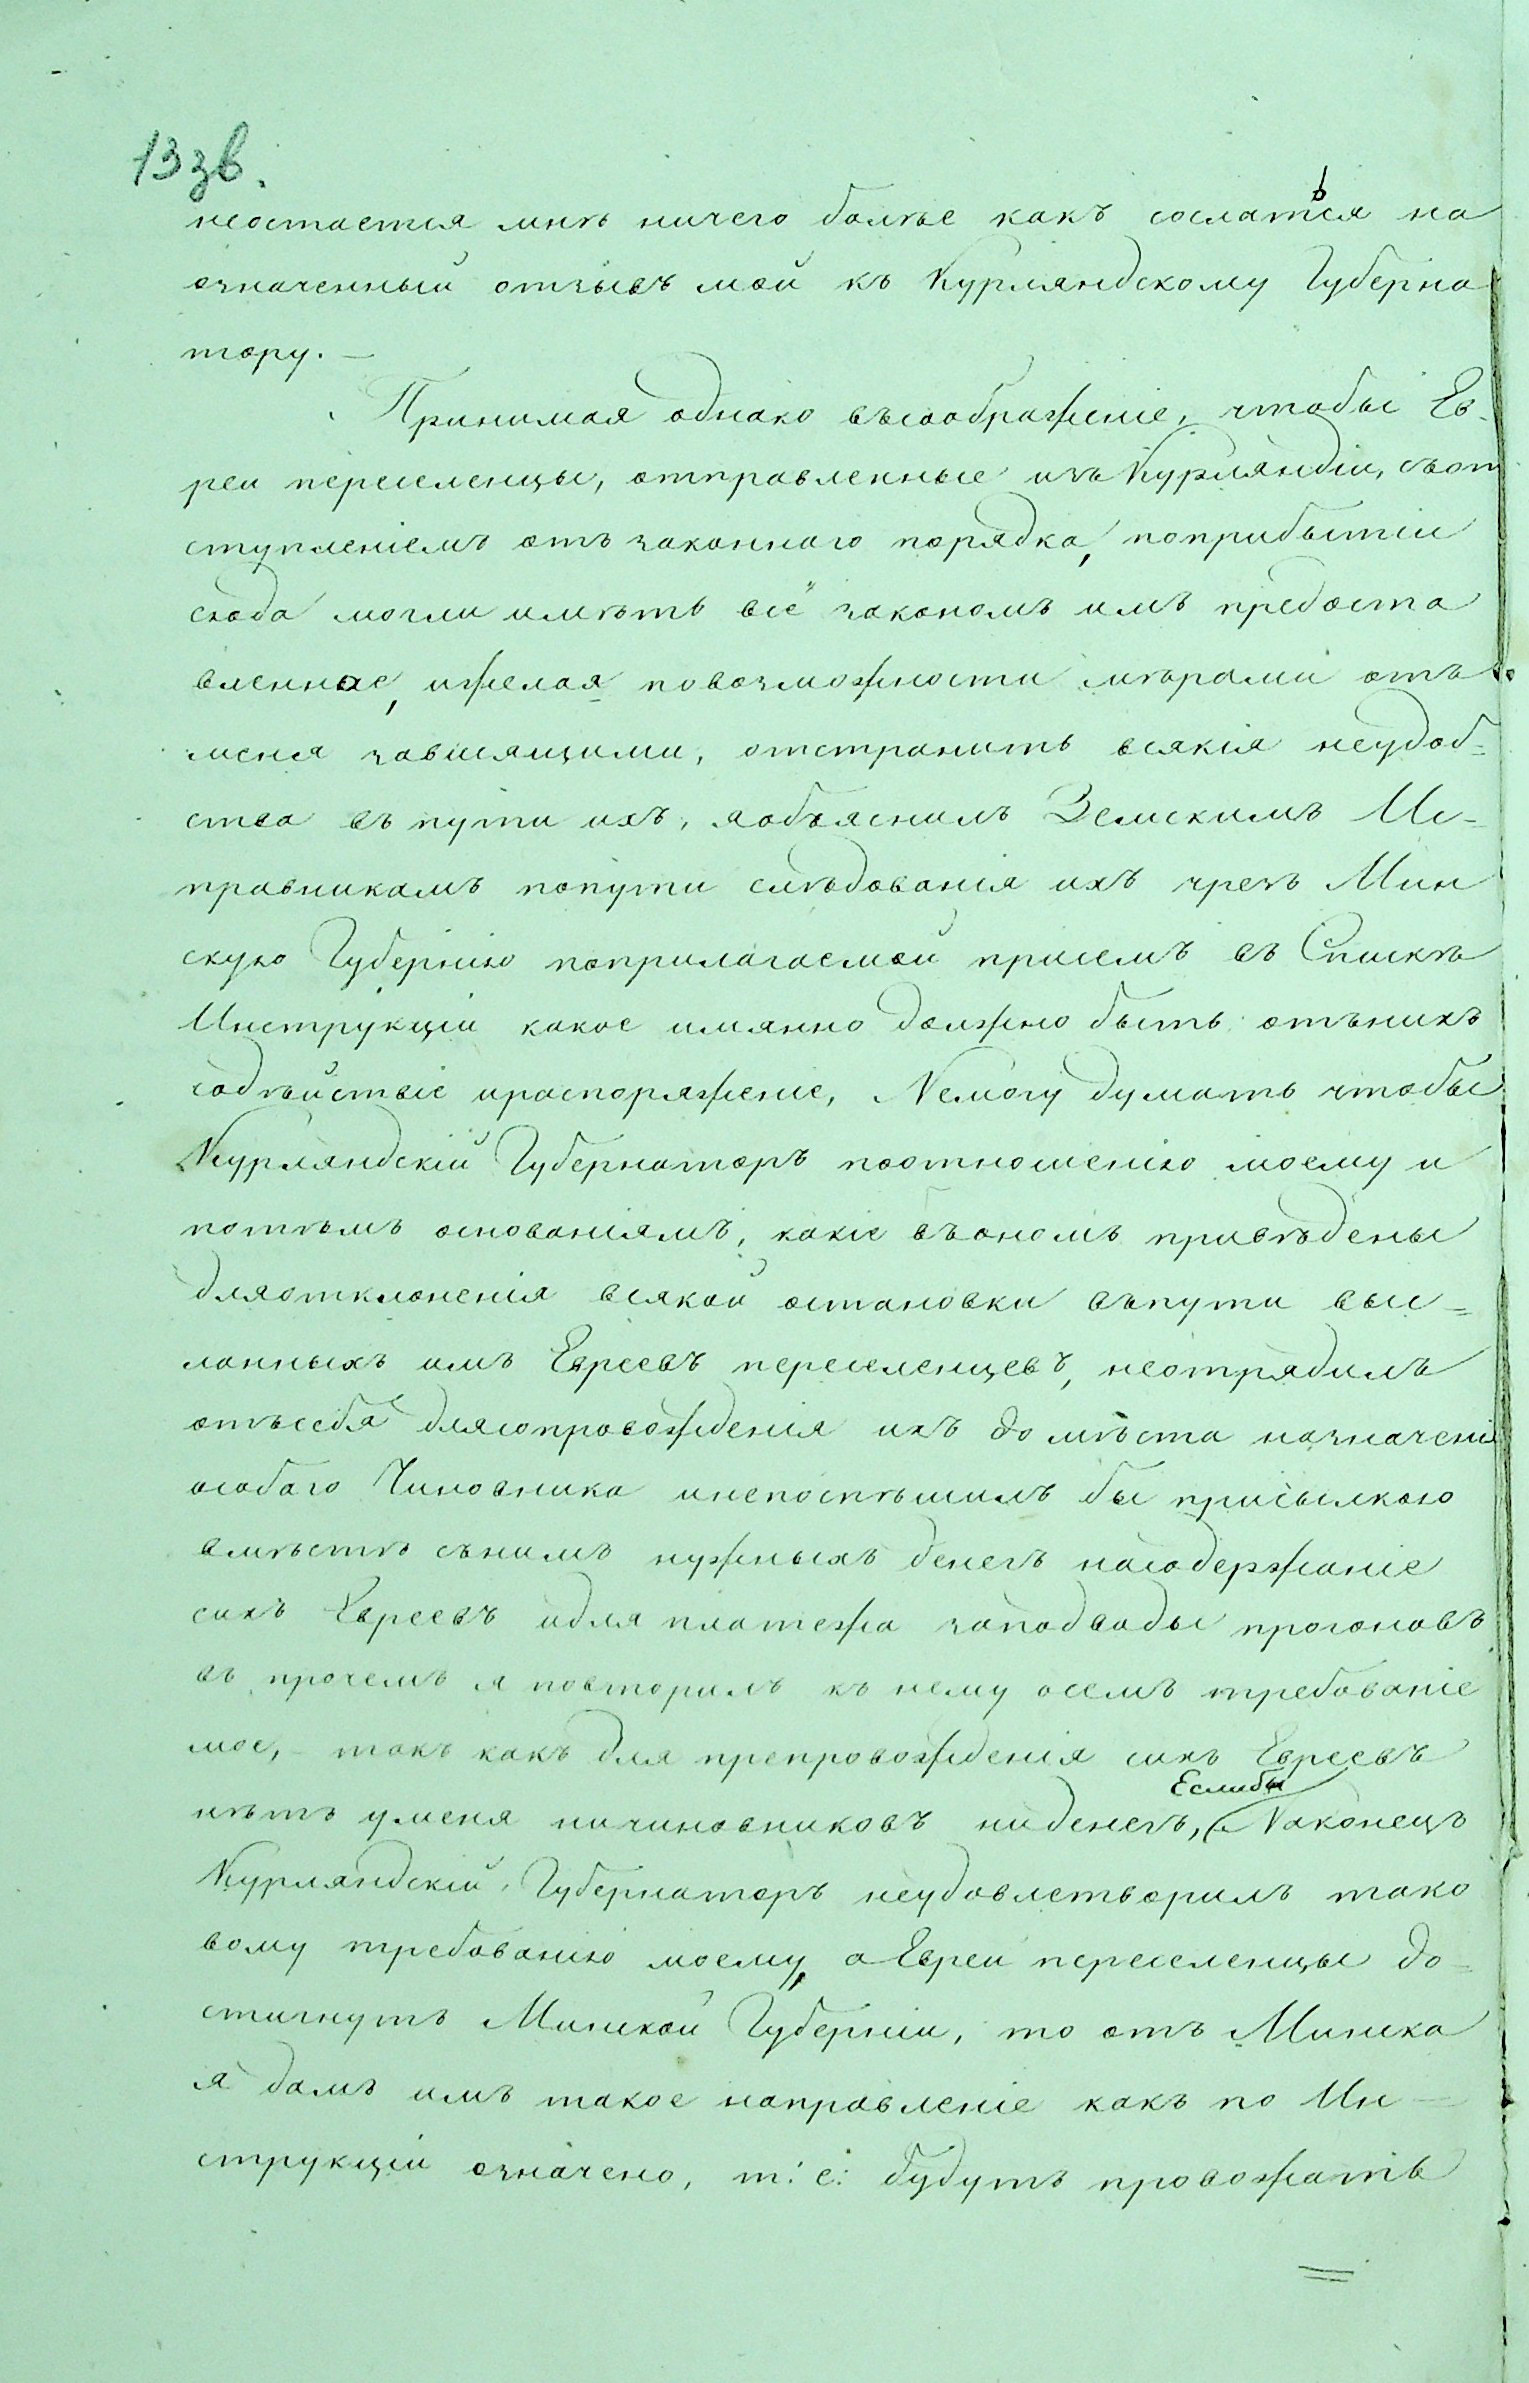 13 зв.
неостается мнѣ ничего болѣе какъ сослаться на
означенный отзывъ мой къ Курляндскому Губерна
тору. —
Принимая однако въсоображеніе, чтобы Ев-
реи переселенцы, отправленные изъ Курляндіи, съот
ступленіемъ отъ законнаго порядка, поприбытіи
сюда могли имѣть всё закономъ имъ предоста
вленное, ижелая повозможности мѣрами отъ
меня зависящими, отстранить всякія неудоб=
ства въ пути ихъ, яобъяснилъ Земскимъ Ис=
правникамъ попути слѣдованія ихъ чрезъ Мин
скую Губернію поприлагаемой присемъ въ Спискѣ
Инструкціи какое имянно должно быть отънихъ
содѣйствіе ираспоряженіе, Немогу думать чтобы
Курляндскій Губернаторъ поотношенію моему и
потѣмъ основаніямъ, какіе въономъ привѣдены
дляотклоненія всякой остановки въпути выс=
ланныхъ имъ Евреевъ переселенцевъ, неотрядилъ
отъсебя длясопровожденія ихъ до мѣста назначенія
особаго Чиновника инепоспѣшилъ бы присылкою
вмѣстѣ сънимъ нужныхъ денегъ насодержаніе
сихъ Евреевъ идля платежа заподводы прогоновъ
въ прочемъ я повторилъ къ нему осемъ требованіе
мое, – такъ какъ для препровожденія сихъ Евреевъ
нѣтъ уменя ничиновниковъ ниденегъ, Еслибы Наконецъ
Курляндскій Губернаторъ неудовлетворилъ тако
вому требованію моему, а Евреи переселенцы до=
стигнутъ Минской Губерніи, то отъ Минска
я дамъ имъ такое направленіе какъ по Ин=
струкціи означено, т: е: будутъ провожать